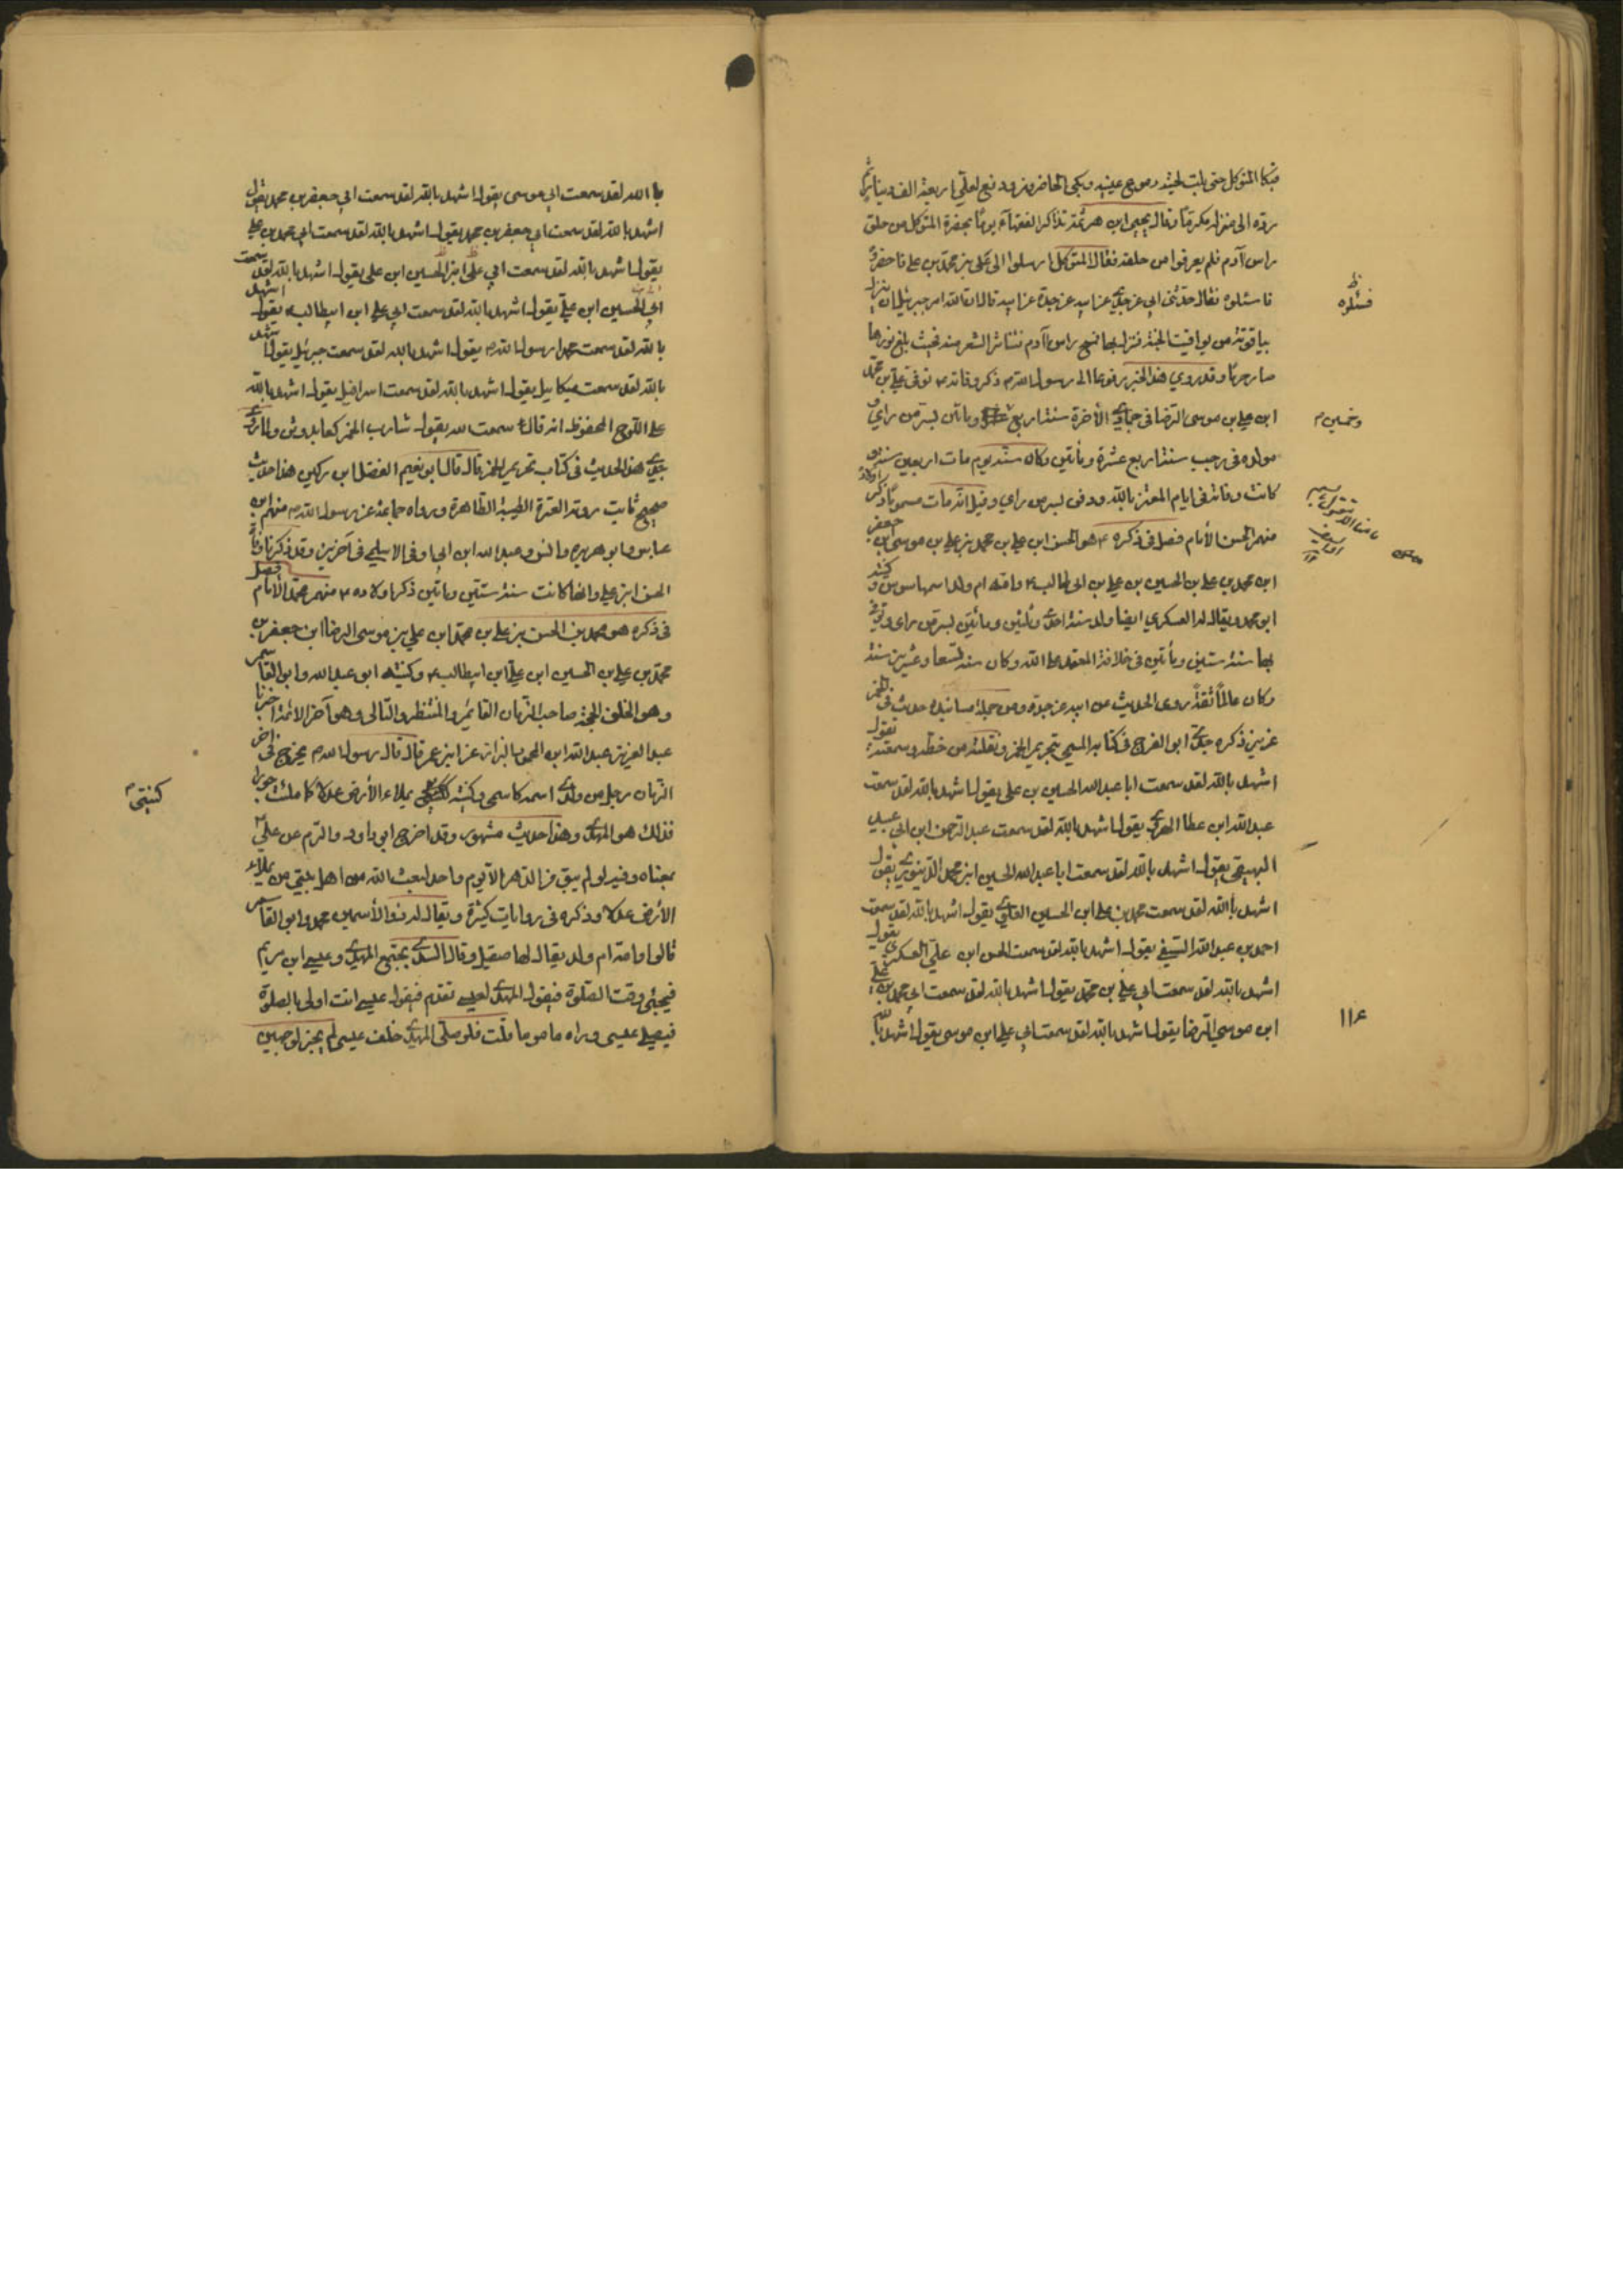 فبكا المتوكل حتى بلت لحيته دموع عينيه وبكى الحاضرون ودفع لعلي اربعة الف دينار ثم
ردّه الى منزله مكرمًا وقال يحيى ابن هرثمة تذاكر الفقهآء يومًا بحضرة المتوكل من حلق
راس آدم فلم يعرفوا من حلقه فقال المتوكل ارسلوا الى علي بن محمد بن علي فاحضروه
فاسئلوه فقال حدثني ابي عن جدي عن ابيه عن جده عن ابيه قال ان الله امر جبرئيل ان ينزل
فسئلوه
بياقوتة من يواقيت الجنة فنزل بها فمسح راس آدم فتناثر الشعر منه فحيث بلغ نورها
صار حرمًا وقد روي هذا الخبر مرفوعا الى رسول الله ذكر وفاته توفى علي بن محمد
ابن علي بن موسى الرضا في جمادى الأخرة سنة اربع ومأتين بسر من راى و
وخمسين
مولده في رجب سنة اربع عشرة ومأتين وكان سنه يوم مات اربعين سنة
كانت وفاته في ايام المعتز بالله ودفن بسر من راي وقيل انه مات مسمومًا ذكر اولاده
منهم الحسن الأمام فصل في ذكره هو الحسن ابن علي بن محمد بن علي بن موسى بن جعفر
ابن محمد بن علي بن الحسين بن علي بن ابي طالب وامه ام ولد اسمها سوسن وكنيته
ابو محمد ويقال له العسكري ايضا ولد سنة احدى وثلثين ومائتين بسر من راى وتوفي
بها سنة ستين ومأتين في خلافة المعتمد على الله وكان سنه تسعا وعشرين سنة
وكان عالمًا ثقةً روى الحديث عن ابيه عن جده ومن جملة مسانيده حديث في الخمر
عزيز ذكره جدي ابو الفرج في كتابه المسمى بتحريم الخمر ونقلته من خطه وسمعته يقول
اشهد بالله لقد سمعت ابا عبد الله الحسين بن علي يقول اشهد بالله لقد سمعت
عبد الله ابن عطا الهروي يقول اشهد بالله لقد سمعت عبد الرحمن ابن ابي عبيد
البيهقي يقول اشهد بالله لقد سمعت ابا عبد الله الحسين ابن محمد الدينوري يقول
اشهد بالله لقد سمعت محمد بن علي ابن الحسين العلوي يقول اشهد بالله لقد سمعت
احمد بن عبد الله السبيعي يقول اشهد بالله لقد سمعت الحسن ابن علي العسكري يقول
اشهد بالله لقد سمعت ابي علي بن محمد يقول اشهد بالله لقد سمعت ابي محمد بن علي
ابن موسى الرضا يقول اشهد بالله لقد سمعت ابي علي ابن موسى يقول اشهد بالله
١١٤
باالله لقد سمعت ابي موسى يقول اشهد بالله لقد سمعت ابي جعفر بن محمد يقول
اشهد بالله لقد سمعت ابي جعفر بن محمد يقول اشهد بالله لقد سمعت ابي محمد بن علي
يقول اشهد بالله لقد سمعت ابي علي ابن الحسين ابن علي يقول اشهد بالله لقد سمعت
ابي الحسين ابن علي يقول اشهد بالله لقد سمعت ابي علي ابن ابيطالب يقول اشهد
بالله لقد سمعت محمدا رسول الله يقول اشهد بالله لقد سمعت جبرئيل يقول اشهد
بالله لقد سمعت ميكاييل يقول اشهد بالله لقد سمعت اسرافيل يقول اشهد بالله
على اللوح المحفوظ انه قال سمعت الله يقول شارب الخمر كعابد وثن ولما روى
جدي هذا الحديث في كتاب تحريم الخمر قال قال ابو نعيم الفضل ابن دكين هذا حديث
صحيح ثابت روته العترة الطيبة الطاهرة ورواه جماعة عن رسول الله منهم ابن
عباس وابو هريره وانس وعبد الله ابن ابي اوفى الاسلمي في آخرين وقد ذكرنا وفاة
الحسن ابن علي وانها كانت سنة ستين ومأتين ذكر اولاده منهم محمد الأمام فصل
في ذكره هو محمد بن الحسن بن علي بن محمد ابن علي بن موسى الرضا ابن جعفر بن
محمد بن علي بن الحسين ابن علي ابن ابيطالب وكنيته ابو عبد الله وابو القاسم
وهو الخلف الحجة صاحب الزمان القائم والمنتظر والتالى وهو آخر الائمة اخبرنا
عبد العزيز عبد الله ابن المحمود البزاز عن ابن عمر قال قال رسول الله يخرج في آخر
الزمان رجل من ولدي اسمه كاسمي وكنيته يملاء الأرض عدلا كما ملئت جورا
كنيتي
فذلك هو المهدي وهذا حديث مشهور وقد اخرج ابو داود والترم عن علي
بمعناه وفيه لو لم يبق من الدهر الا يوم واحد لبعث الله من اهل بيتي من يملاء
الأرض عدلا وذكره في روايات كثيرة ويقال له ذو الأسمين محمد وابو القاسم
قالوا وامه ام ولد يقال لها صقيل وقال السدي يجتمع المهدي وعيسى ابن مريم
فيجئ وقت الصلوة فيقول المهدي لعيسى تقدم فيقول عيسى انت اولى بالصلوة
فيصلي عيسى وراه ماموما قلت فلو صلى المهدي خلف عيسى لم يجز لوجهين